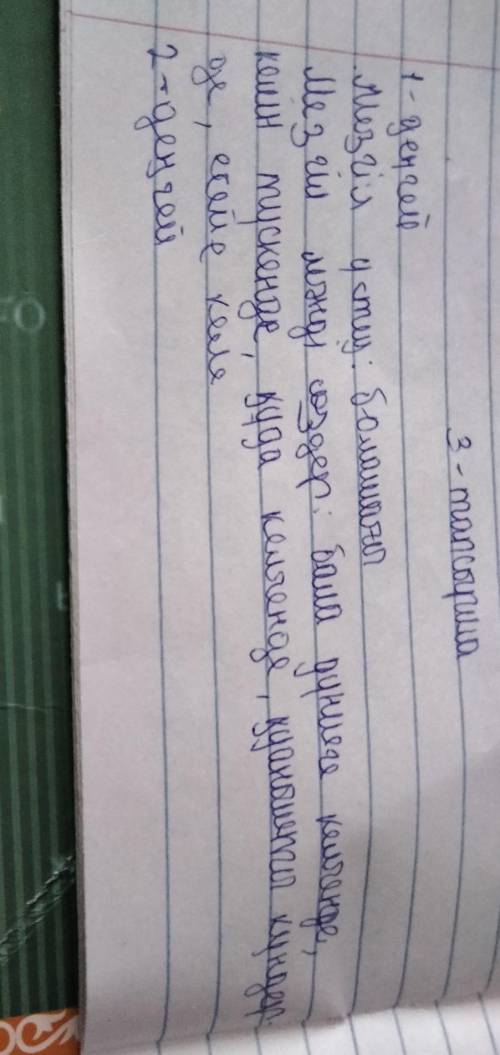 3-тапсырма
1-деңгей
Мезгіл үстеу: болашағы
Мезгіл мәнді сөздер: бала дүниеге келгенде,
келін түскенде, құда келгенде, қуанышты күндер-
де, есейе келе
2-деңгей